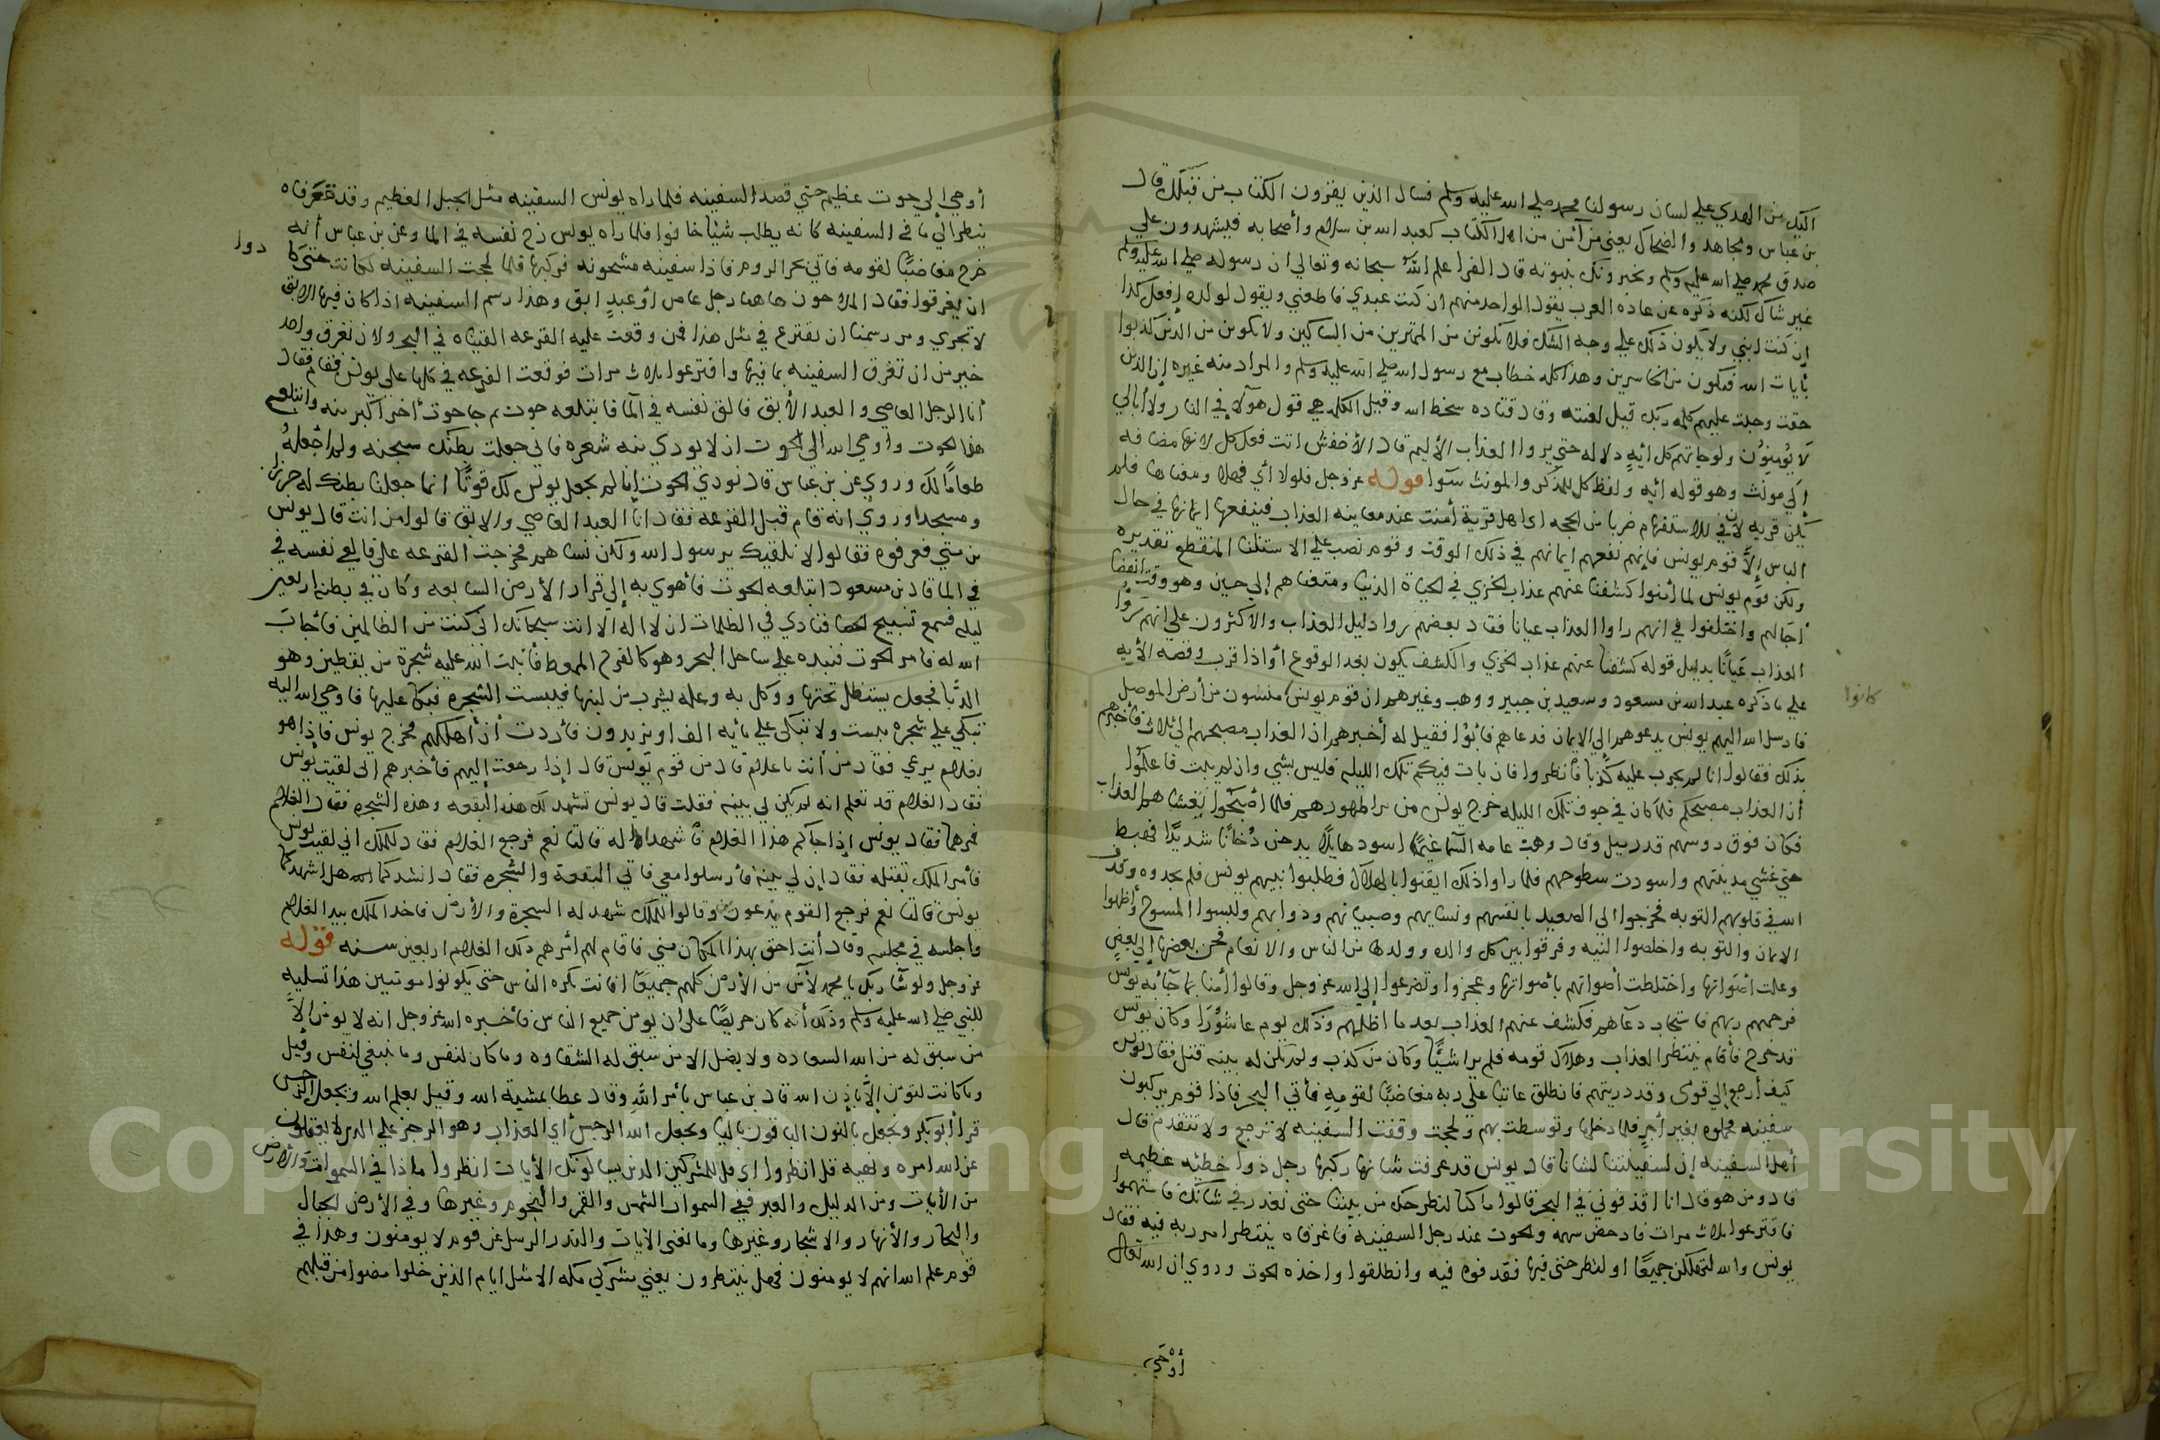 اليك من الهدي علي لسان رسولنا محمد صلي الله عليه وسلم فسال الذين يقرون الكتاب من قبلك قال
بن عباس ومجاهد والضحاك يعني من آمن من اهل الكتاب كعبد الله بن سلام وأصحابه فيشهدون علي
صدق محمد صلي الله عليه وسلم ويخبرونك بنبوته قال الفرا علم الله سبحانه وتعالي ان رسوله صلي الله عليه وسلم
غير شاك لكنه ذكره عن عاده العرب يقول الواحد منهم ان كنت عبدي فاطعني ويقول لولده افعل كذا
ان كنت ابني ولا يكون ذلك علي وجه الشك فلا تكونن من الممترين من الشاكين ولا تكونن من الذين كذبوا
بأيات الله فتكون من الخاسرين وهذا كله خطاب مع رسول الله صلي الله عليه وسلم والمراد منه غيره إن الذين
حقت وجبت عليهم كلمه ربك قيل لعنته وقال قتاده سخط الله وقيل الكلمه هي قول هولآ في النار ولا أبالي
لا يومنون ولو جاتهم كل ايه دلاله حتي يروا العذاب الأليم قال الأخفش انت فعل كل لانها مضافه
الي مونث وهو قوله ايه ولفظ كل للمذكر والمونث سوا قوله عز وجل فلولا أي فهلا ومعناها فلم
تكن قريه لان في الاستفهام ضربا من الجحد اي اهل قرية أمنت عند معاينه العذاب فينفعها ايمانها في حال
الباس إلا قوم يونس فإنهم نفعهم ايمانهم في ذلك الوقت وقوم نصب علي الاستثنا المنقطع تقديره
ولكن قوم يونس لما أمنوا كشفنا عنهم عذاب الخزي في الحياة الدنيا ومتعناهم إلي حين وهو وقت انقضا
أجالهم واختلفوا في انهم راوا العذاب عيانا فقال بعضهم روا دليل العذاب والاكثرون علي انهم روا
العذاب عيانا بدليل قوله كشفنا عنهم عذاب الخزي والكشف يكون بعد الوقوع أو اذا قرب وقصه الأيه
علي ما ذكره عبد الله بن مسعود وسعيد بن جبير ووهب وغيرهم ان قوم يونس كانوا بنينوي من أرض الموصل
فارسل الله اليهم يونس يدعوهم إلي الايمان فدعاهم فأبوا فقيل له أخبرهم ان العذاب مصبحهم الي ثلاث فأخبرهم
بذلك فقالوا انا لم نجرب عليه كذبا فأنظروا فان بات فيكم تلك الليله فليس بشي وان لم يبت فاعلموا
أن العذاب مصبحكم فلما كان في جوف تلك الليله خرج يونس من بين اظهرهم فلما اصبحوا تغشاهم العذاب
فكان فوق روسهم قدر ميل وقال وهب غامه السما غيما اسود هايلا يدخن دخانا شديدا فهبط
حتي غشي مدينتهم واسودت سطوحهم فلما راوا ذلك ايقنوا بالهلاك فطلبوا نبيهم يونس فلم يجدوه وقذف
الله في قلوبهم التوبه فخرجوا الي الصعيد بانفسهم ونسايهم وصبيانهم ودوابهم ولبسوا المسوح وأظهروا
الايمان والتوبه واخلصوا النيه وفرقوا بين كل والده وولدها من الناس والانعام فحن بعضها إلي بعض
وعلت أصواتها واختلطت أصواتهم بأصواتها وعجزوا وتضرعوا إلي الله عز وجل وقالوا أمنا بما جآ به يونس
فرحمهم ربهم فاستجاب دعآهم فكشف عنهم العذاب بعد ما اظلهم وذلك يوم عاشورا وكان يونس
قد خرج فأقام ينتظر العذاب وهلاك قومه فلم يرا شيئا وكان من كذب ولم تكن له بينه قتل فقال يونس
كيف أرجع إلي قومي وقد دريتهم فانطلق عاتبا علي ربه مغاضبا لقومه فأتي البحر فاذا قوم يركبون
سفينه فحملوه بغير أجر فلما دخلها وتوسطت بهم ولججت وقفت السفينه لا ترجع ولا تتقدم قال
أهل السفينه إن لسفينتنا لشانا قال يونس قد عرفت شانها ركبها رجل ذو خطئه عظيمه
قال ومن هو قال انا اقذفوني في البحر قالوا ما كنا لنطرحك من بيننا حتي نعذر في شانك فاستهموا
فاقترعوا ثلاث مرات فادحض سهمه والحوت عند رجل السفينه فاغرفاه ينتظر امر ربه فيه فقال
يونس والله لتهلكن جميعا او لتطرحنني فيها فقذفوه فيه وانطلقوا واخذه الحوت وروي ان الله تعالي
كانوا
أوحي
أوحي إلي حوت عظيم حتي قصد السفينه فلما راه يونس السفينه مثل الجبل العظيم وقد فغر فاه
ينظر الي ما في السفينه كانه يطلب شيئا خافوا فلما راه يونس زج نفسه في الما وعن بن عباس أنه
خرج مغاضبا لقومه فاتي بحر الروم فاذا سفينه مشحونه فركبها فلما لججت السفينه تكانت حتي كا
دوا
ان يغرقوا فقال الملاحون هاهنا رجل عاص أو عبد ابق وهذا رسم السفينه اذا كان فيها الابق
لا تجري ومن رسمنا ان نقترع في مثل هذا فمن وقعت عليه القرعه القيناه في البحر ولان نغرق واحد
خير من ان تغرق السفينه بما فيها واقترعوا ثلاث مرات فوقعت القرعه في كلها علي يونس فقام فقال
أنا الرجل العاصي والعبد الأبق فالقي نفسه في المآ فابتلعه حوت ثم جا حوت أخر اكبر منه وابتلع
هذا الحوت واوحي الله الي الحوت ان لا توذي منه شعره فاني جعلت بطنك سجنه ولم اجعله
طعاما لك وروي عن بن عباس قال نودي الحوت إنا لم نجعل يونس لك قوتا انما جعلنا بطنك له حرزا
ومسجدا وروي انه قام قبل القرعه فقال انا العبد العاصي والابق قالوا من انت قال يونس
بن متي فعرفوه فقالوا لا نلقيك يرسول الله ولكن نساهم فخرجت القرعه علي فالقي نفسه في
في الما قال بن مسعود ابتلعه الحوت فأهوي به إلي قرار الأرض السابعه وكان في بطنه اربعين
ليله فسمع تسبيح الحصا فنادي في الظلمات ان لا اله الا انت سبحانك اني كنت من الظالمين فأجاب
الله له فامر الحوت فنبذه علي ساحل البحر وهو كالفرخ الممعط فأنبت الله عليه شجرة من يقطين وهو
الدبا فجعل يستظل تحتها ووكل به وعله يشرب من لبنها فيبست الشجره فبكا عليها فاوحي الله اليه
تبكي علي شجرة يبست ولا تبكي علي مايه الف او يزيدون فأردت أن أهلكهم فخرج يونس فاذا هو
بغلام يرعي فقال من أنت يا غلام قال من قوم يونس قال إذا رجعت إليهم فأخبرهم اني لقيت يونس
فقال الغلام قد تعلم انه لم تكن لي بينه فقلت قال يونس تشهد لك هذه البقعه وهذه الشجره فقال الغلام
فمرهما فقال يونس إذا جاكم هذا الغلام فأشهدا له قالتا نعم فرجع الغلام فقال للملك اني لقيت يونس
فأمر الملك بقتله فقال إن لي بينه فأرسلوا معي فاتي البقعة والشجره فقال انشدكما الله هل اشهدكما
يونس قالتا نعم فرجع القوم يدعون وقالوا للملك شهد له الشجرة والأرض فاخذ الملك بيد الغلام
واجلسه في مجلسه وقال أنت احق بهذا المكان مني فاقام لهم امرهم ذلك الغلام اربعين سنه قوله
عز وجل ولو شا ربك يا محمد لأمن من في الأرض كلهم جميعا افانت تكره الناس حتي يكونوا مومنين هذا تسليه
للنبي صلي الله عليه وسلم وذلك أنه كان حريصا علي ان يومن جميع الناس فأخبره الله عز وجل انه لا يومن الا
من سبق له من الله السعاده ولا يضل الا من سبق له الشقاوه وما كان لنفس وما ينبغي لنفس وقيل
وما كانت لتومن إلا باذن الله قال بن عباس بأمر الله وقال عطا بمشية الله وقيل بعلم الله ويجعل الرجس
قرا أبو بكر ونجعل بالنون الباقون باليا ويجعل الله الرجس أي العذاب وهو الرجز علي الذين لا يعقلون
عن الله امره ونهيه قل انظروا اي قل للمشركين الذين يسالونك الأيات انظروا ماذا في السموات والأرض
من الأيات ومن الدليل والعبر ففي السموات الشمس والقمر والنجوم وغيرها وفي الأرض الجبال
والبحار والأنهار والاشجار وغيرها وما تغني الايات والنذر الرسل عن قوم لا يومنون وهذا في
قوم علم الله انهم لا يومنون فهل ينتظرون يعني مشركي مكه الا مثل ايام الذين خلوا مضوا من قبلهم
Copyright © King Saud University